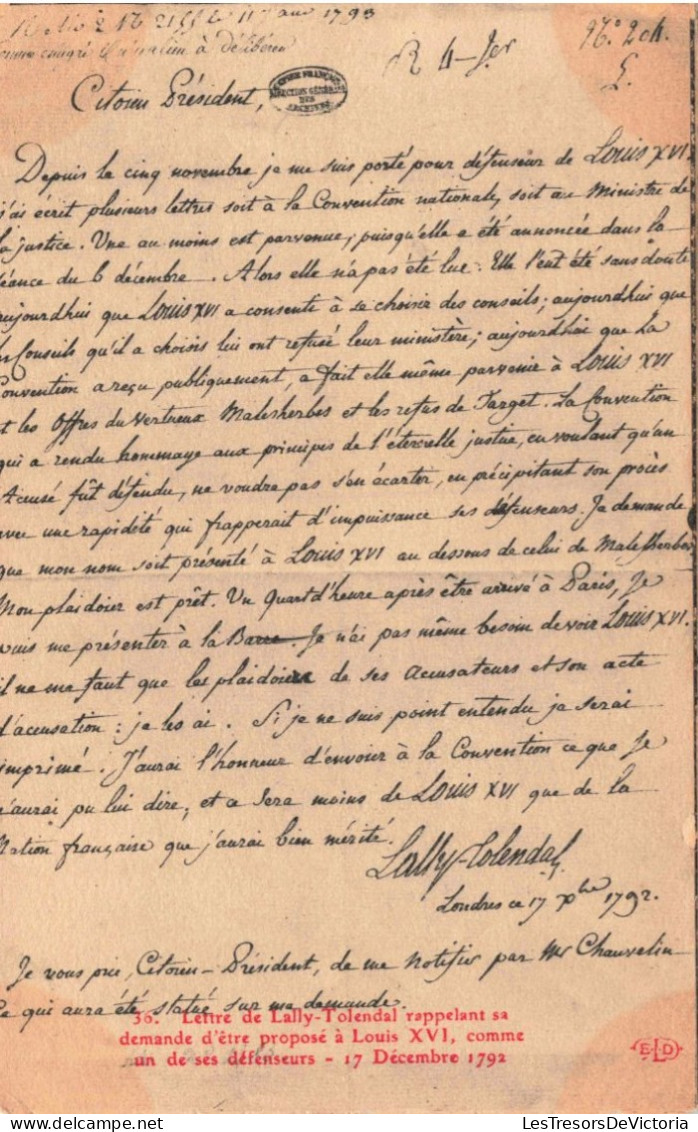 11 Janv 1793
à délibérer
B 4 -
96.e 204.
Citoien Président,
EMPIRE FRANÇAIS
DIRECTION GÉNÉRALE
DES
ARCHIVES
Depuis le cinq novembre je me suis porté pour défenseur de Louis XVI.
j'ai écrit plusieurs lettres soit à la Convention nationale, soit au Ministre de
la justice. Une au moins est parvenue, puisqu'elle a été annoncée dans la
séance du 6 décembre. Alors elle n'a pas été lue. Elle l'eut été sans doute
aujourdhui que Louis XVI a consenti à se choisir des conseils; aujourdhui que
les Conseils qu'il a choisis lui ont refusé leur ministère; aujourdhui que La
Convention a reçu publiquement, a fait elle même parvenir à Louis XVI
et les Offres du vertueux Malesherbes et les refus de Target. La Convention
qui a rendu hommage aux principes de l'éternelle justice, en voulant qu'un
Accusé fût défendu, ne voudra pas s'en écarter, en précipitant son procès
avec une rapidité qui frapperait d'impuissance ses défenseurs. Je demande
que mon nom soit présenté à Louis XVI au dessous de celui de Malesherbes
Mon plaidoier est prêt. Un Quart d'heure après être arrivé à Paris, Je
puis me présenter à la Barre. Je n'ai pas même besoin de voir Louis XVI.
il ne me faut que les plaidoiers de ses Accusateurs et son acte
d'accusation : je les ai. Si je ne suis point entendu je serai
imprimé. J'aurai l'honneur d'envoier à la Convention ce que Je
n'aurai pu lui dire, et ce sera moins de Louis XVI que de la
Nation française que j'aurai bien mérité.
Lally-Tolendal
Londres ce 17 Xbre 1792.
Je vous prie, Citoien-Président, de me Notifier par Mr Chauvelin
Ce qui aura été statué sur ma demande.
36. Lettre de Lally-Tolendal rappelant sa
demande d'être proposé à Louis XVI, comme
un de ses défenseurs - 17 Décembre 1792
E.L.D
LesTresorsDeVictoria